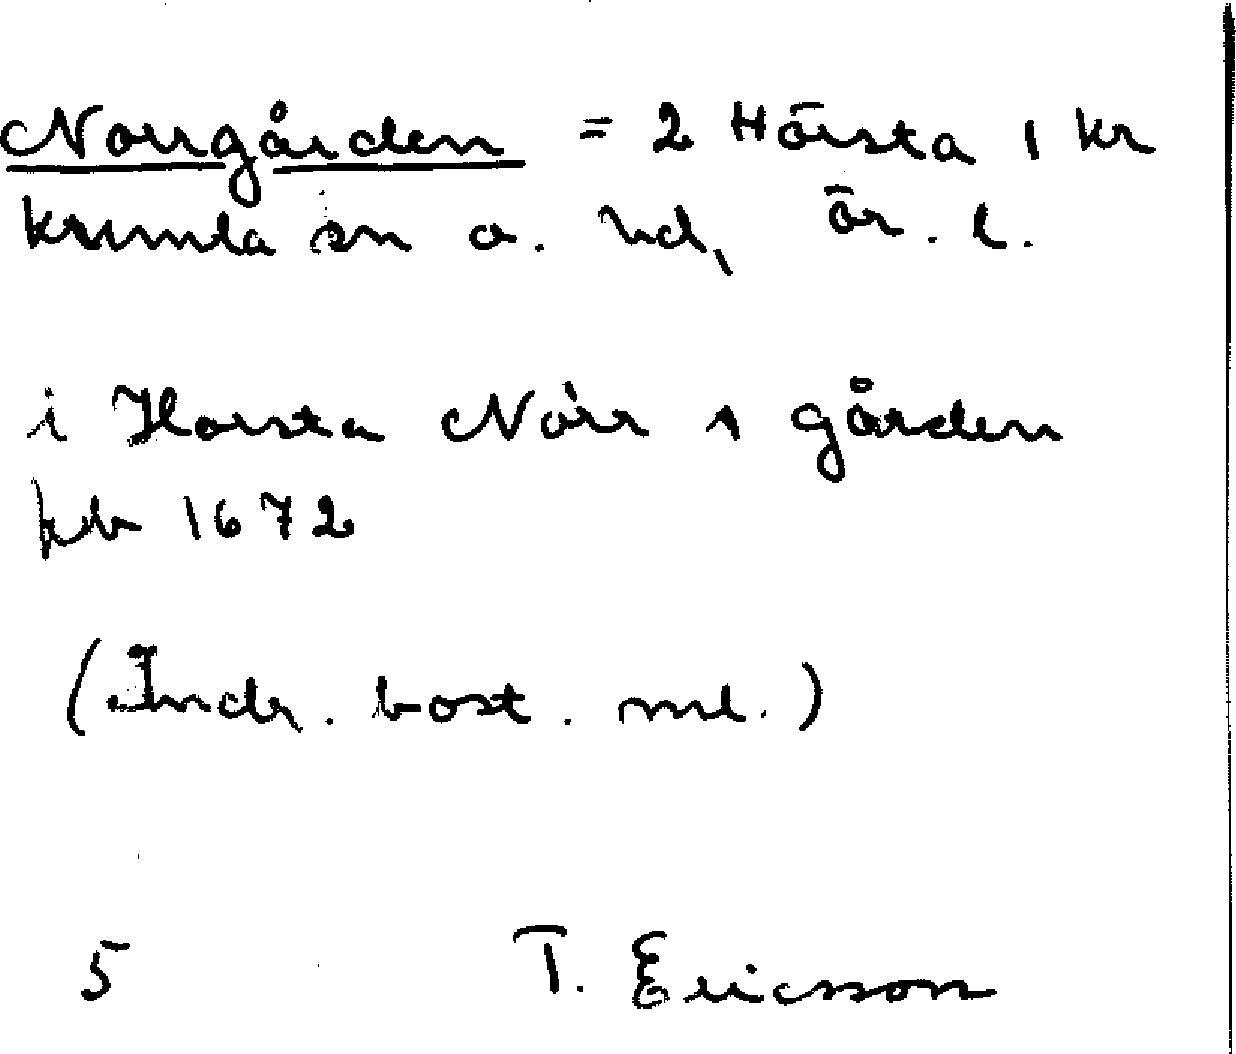 Norrgården = 2 Hörsta 1 kr
Krumla sn o. hd, Ör. l.
i Horsta Norr 1 gården
kb 1672
(Indr. bost. ml.)
5 T. Ericsson